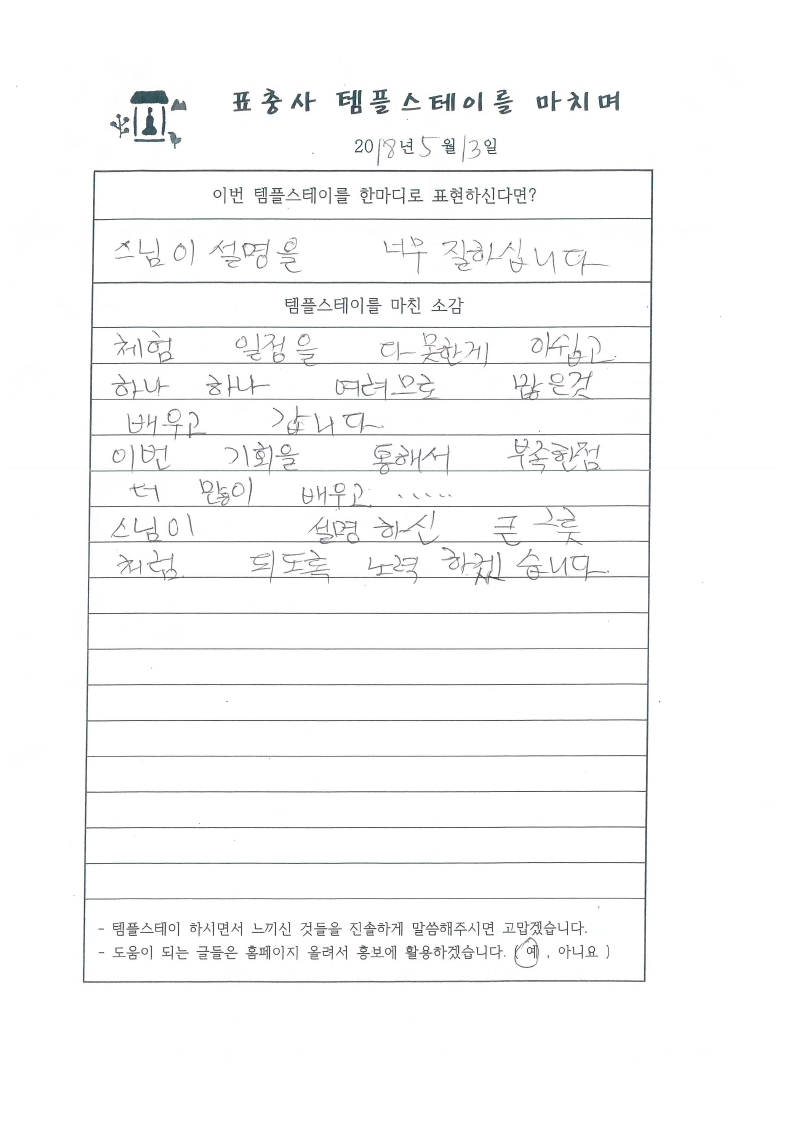 표충사 템플스테이를 마치며
2018년 5월 13일
이번 템플스테이를 한마디로 표현하신다면?
스님이 설명을 너무 잘하십니다
템플스테이를 마친 소감
체험 일정을 다 못한게 아쉽고
하나 하나 여려므로 많은것
배우고 갑니다
이번 기회을 통해서 부족한점
더 많이 배우고 .....
스님이 설명 하신 큰 그릇
처럼 되도록 노력 하겠습니다
- 템플스테이 하시면서 느끼신 것들을 진솔하게 말씀해주시면 고맙겠습니다.
- 도움이 되는 글들은 홈페이지 올려서 홍보에 활용하겠습니다. ( 예 , 아니요 )